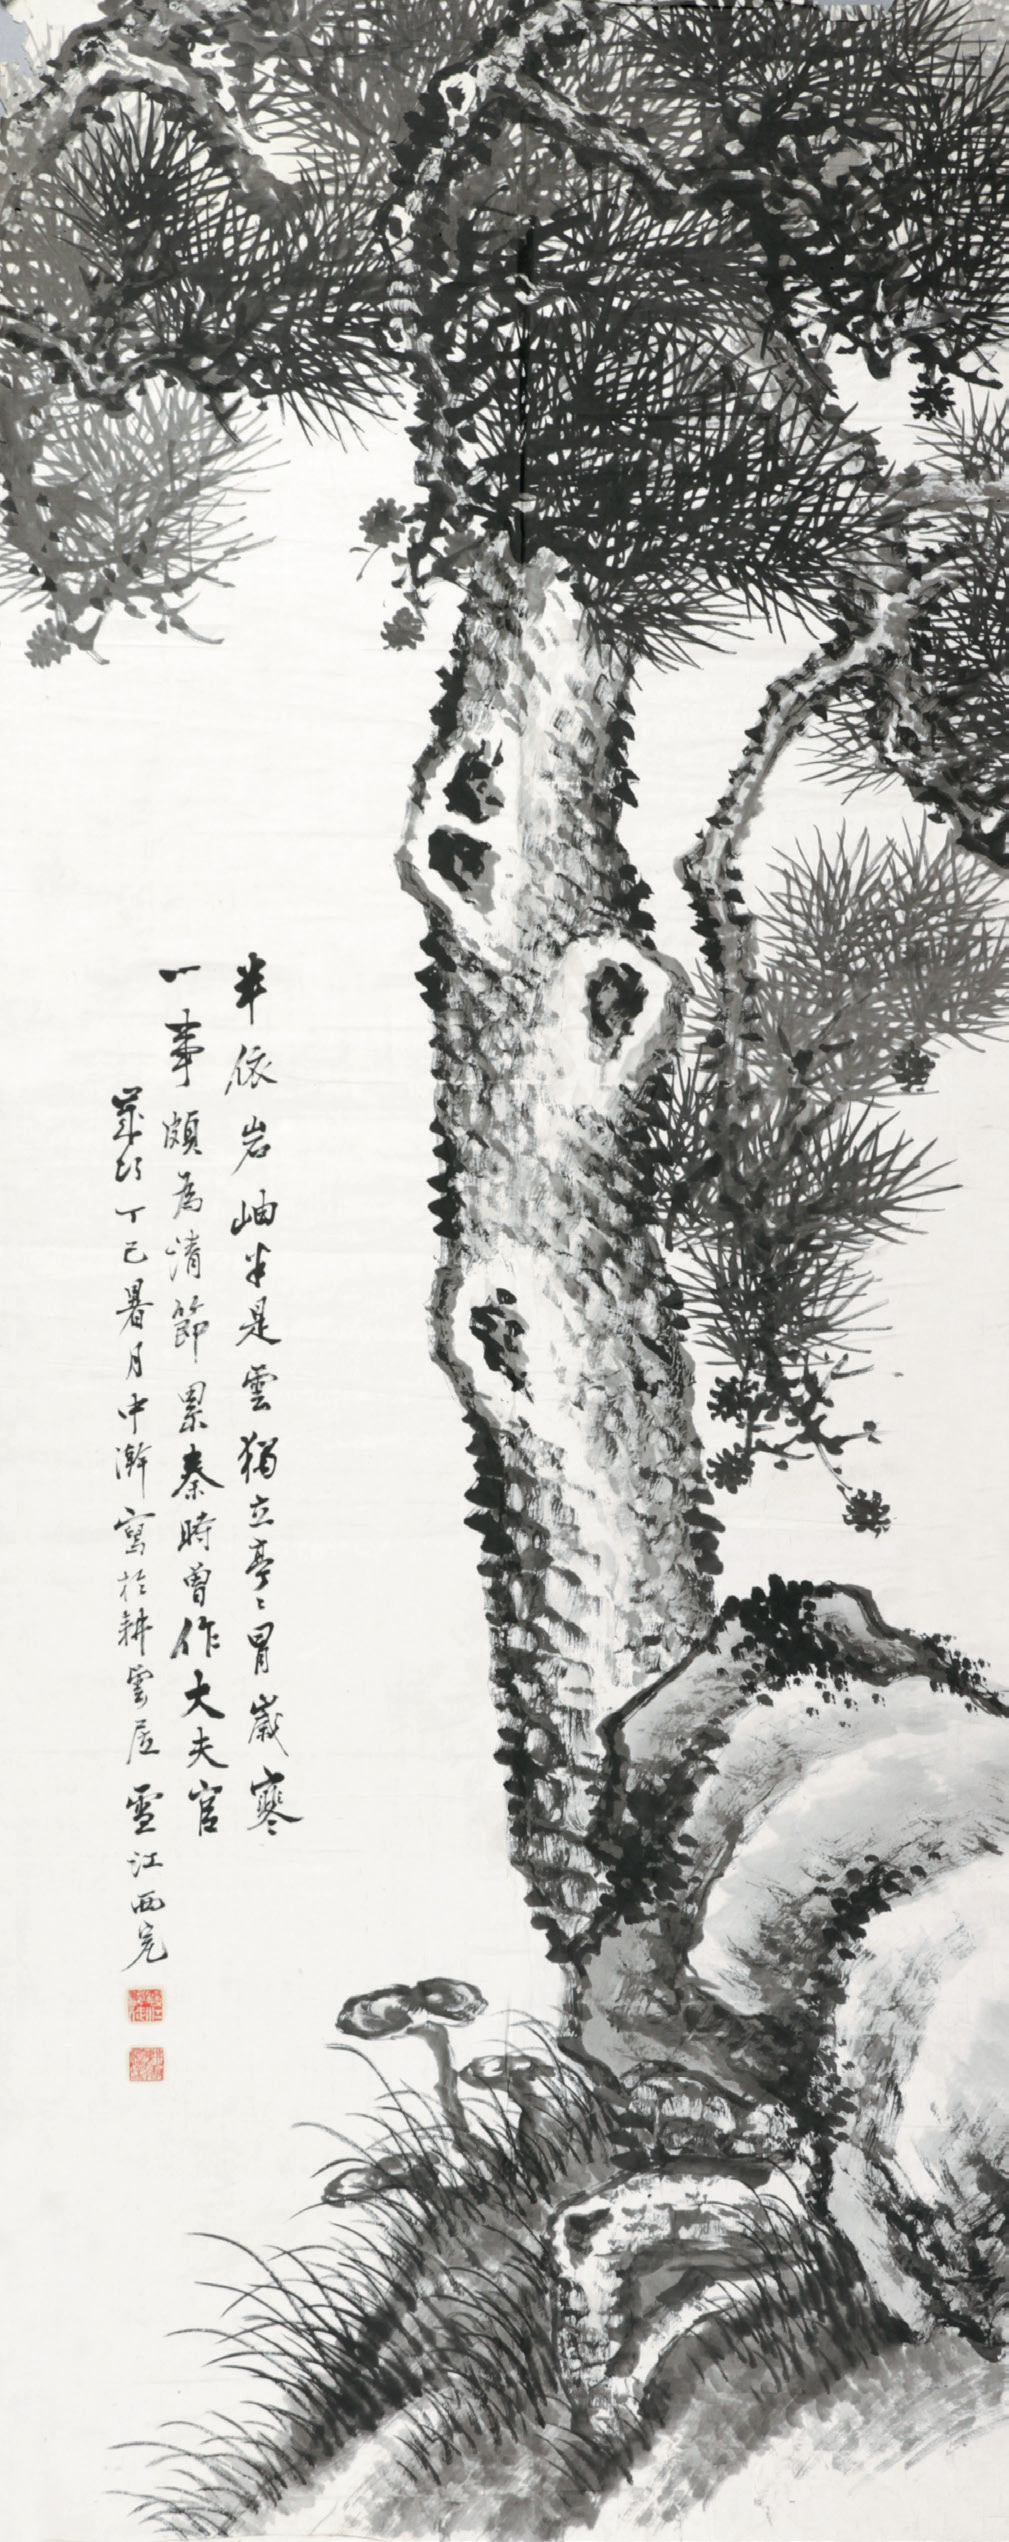 半依岩岫半是雲獨立亭々冒歲寒
一事頗為清節累秦時曾作大夫官
歲行丁巳暑月中澣寫於耕雲居雪江